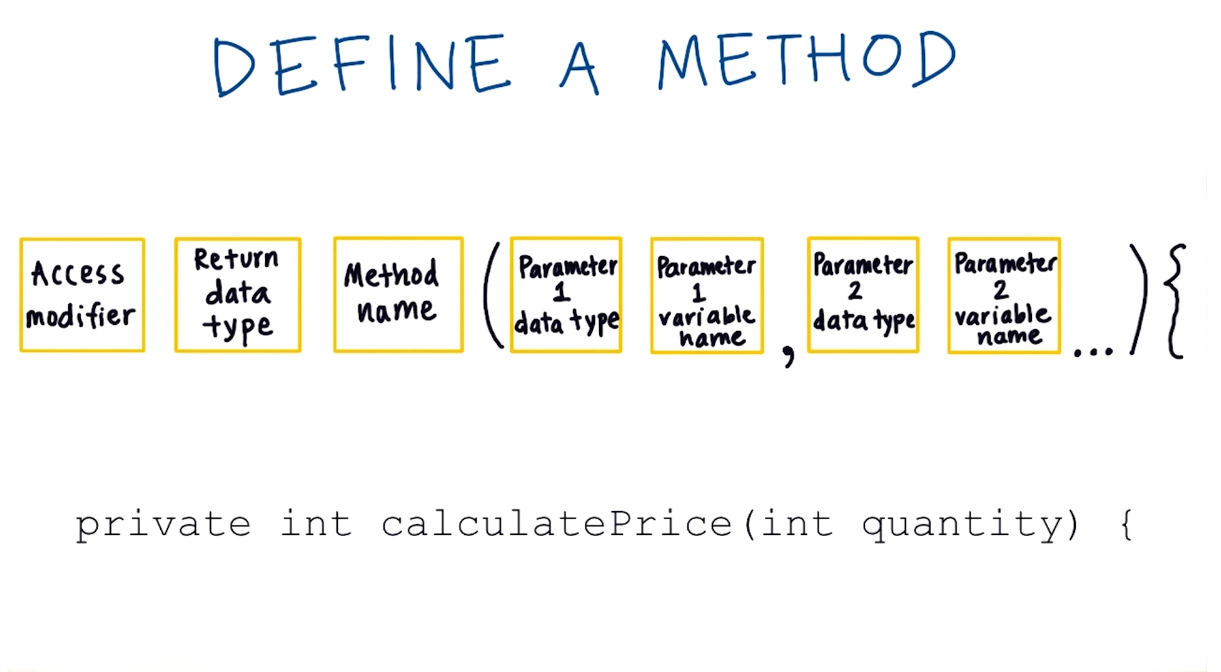 DEFINE A METHOD
Access
modifier
Return
data
type
Method
name
(
Parameter
1
data type
Parameter
1
variable
name
,
Parameter
2
data type
Parameter
2
variable
name
...
) {
private int calculatePrice(int quantity) {